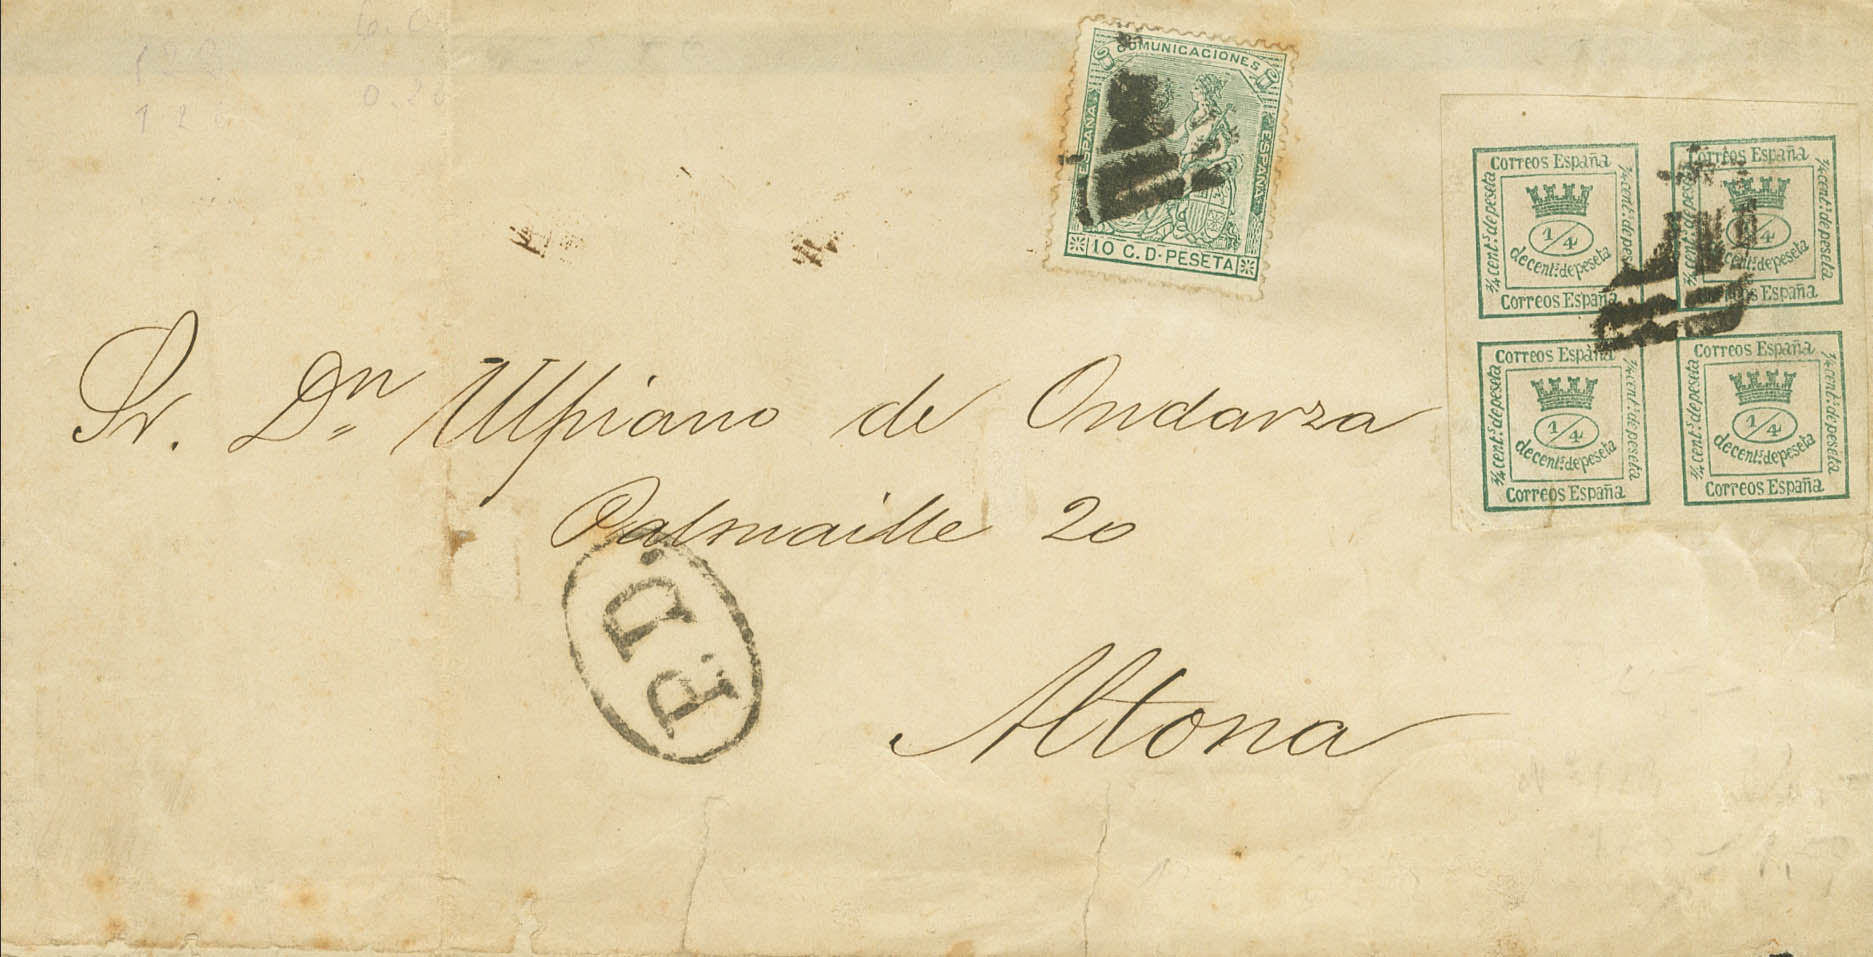 COMUNICACIONES
ESPAÑA
ESPAÑA
10 C. D. PESETA
Correos España
1/4 cent.s de peseta
1/4
de cent.s de peseta
1/4 cent.s de peseta
Correos España
Correos España
1/4 cent.s de peseta
1/4
de cent.s de peseta
1/4 cent.s de peseta
Correos España
Correos España
1/4 cent.s de peseta
1/4
de cent.s de peseta
1/4 cent.s de peseta
Correos España
Correos España
1/4 cent.s de peseta
1/4
de cent.s de peseta
1/4 cent.s de peseta
Correos España
Sr. Dn Ulpiano de Ondarza
Palmaille 20
P.D.
Altona